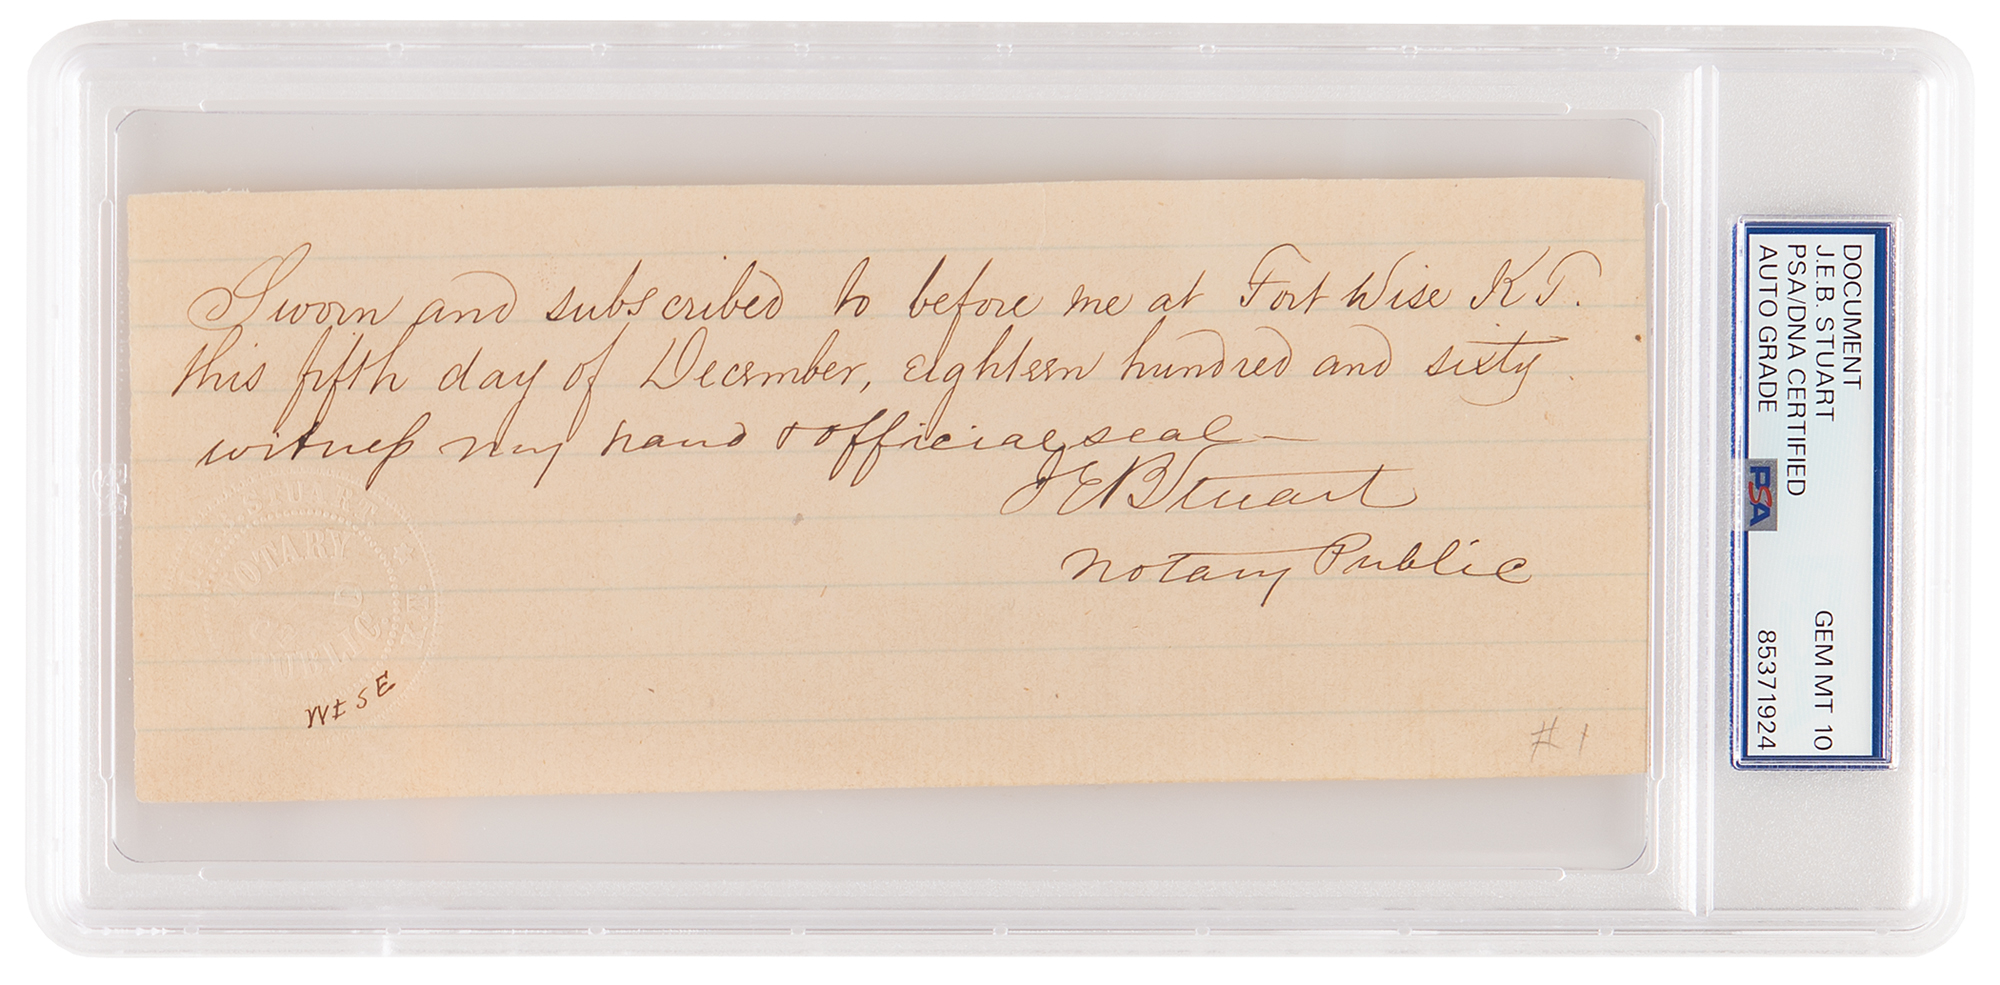 Sworn and subscribed to before me at Fort Wise K T.
this fifth day of December, eighteen hundred and sixty.
witness my hand & official seal—
JEB Stuart
Notary Public
STUART
NOTARY
PUBLIC
WISE
#1
DOCUMENT
J.E.B. STUART
PSA/DNA CERTIFIED GEM MT 10
AUTO GRADE 85371924
PSA